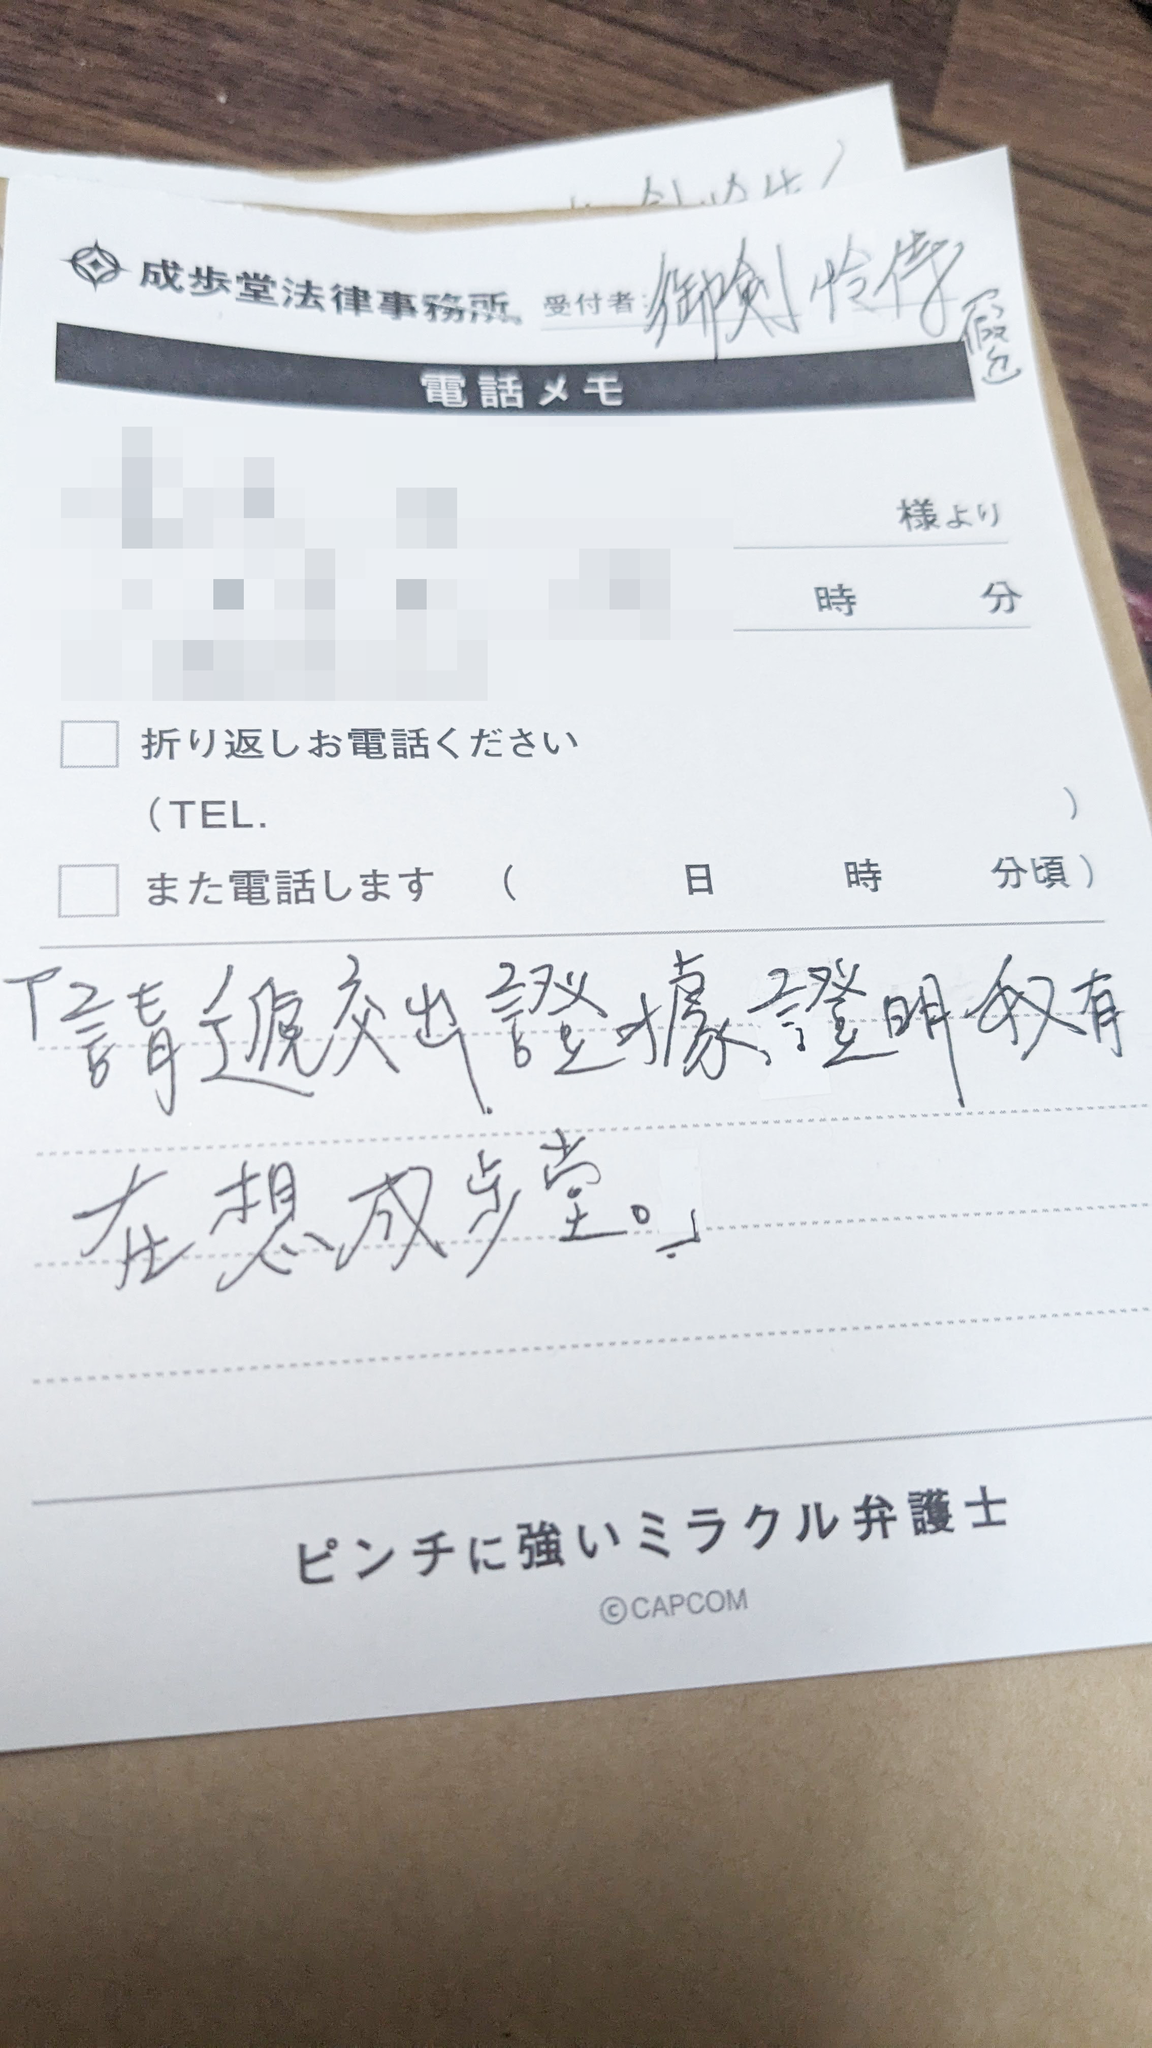 成歩堂法律事務所 受付者: 御剣怜侍
假包
電話メモ
様より
時 分
折り返しお電話ください
(TEL. )
また電話します ( 日 時 分頃)
「請遞交出證據,證明我有
在想成步堂。」
ピンチに強いミラクル弁護士
©CAPCOM